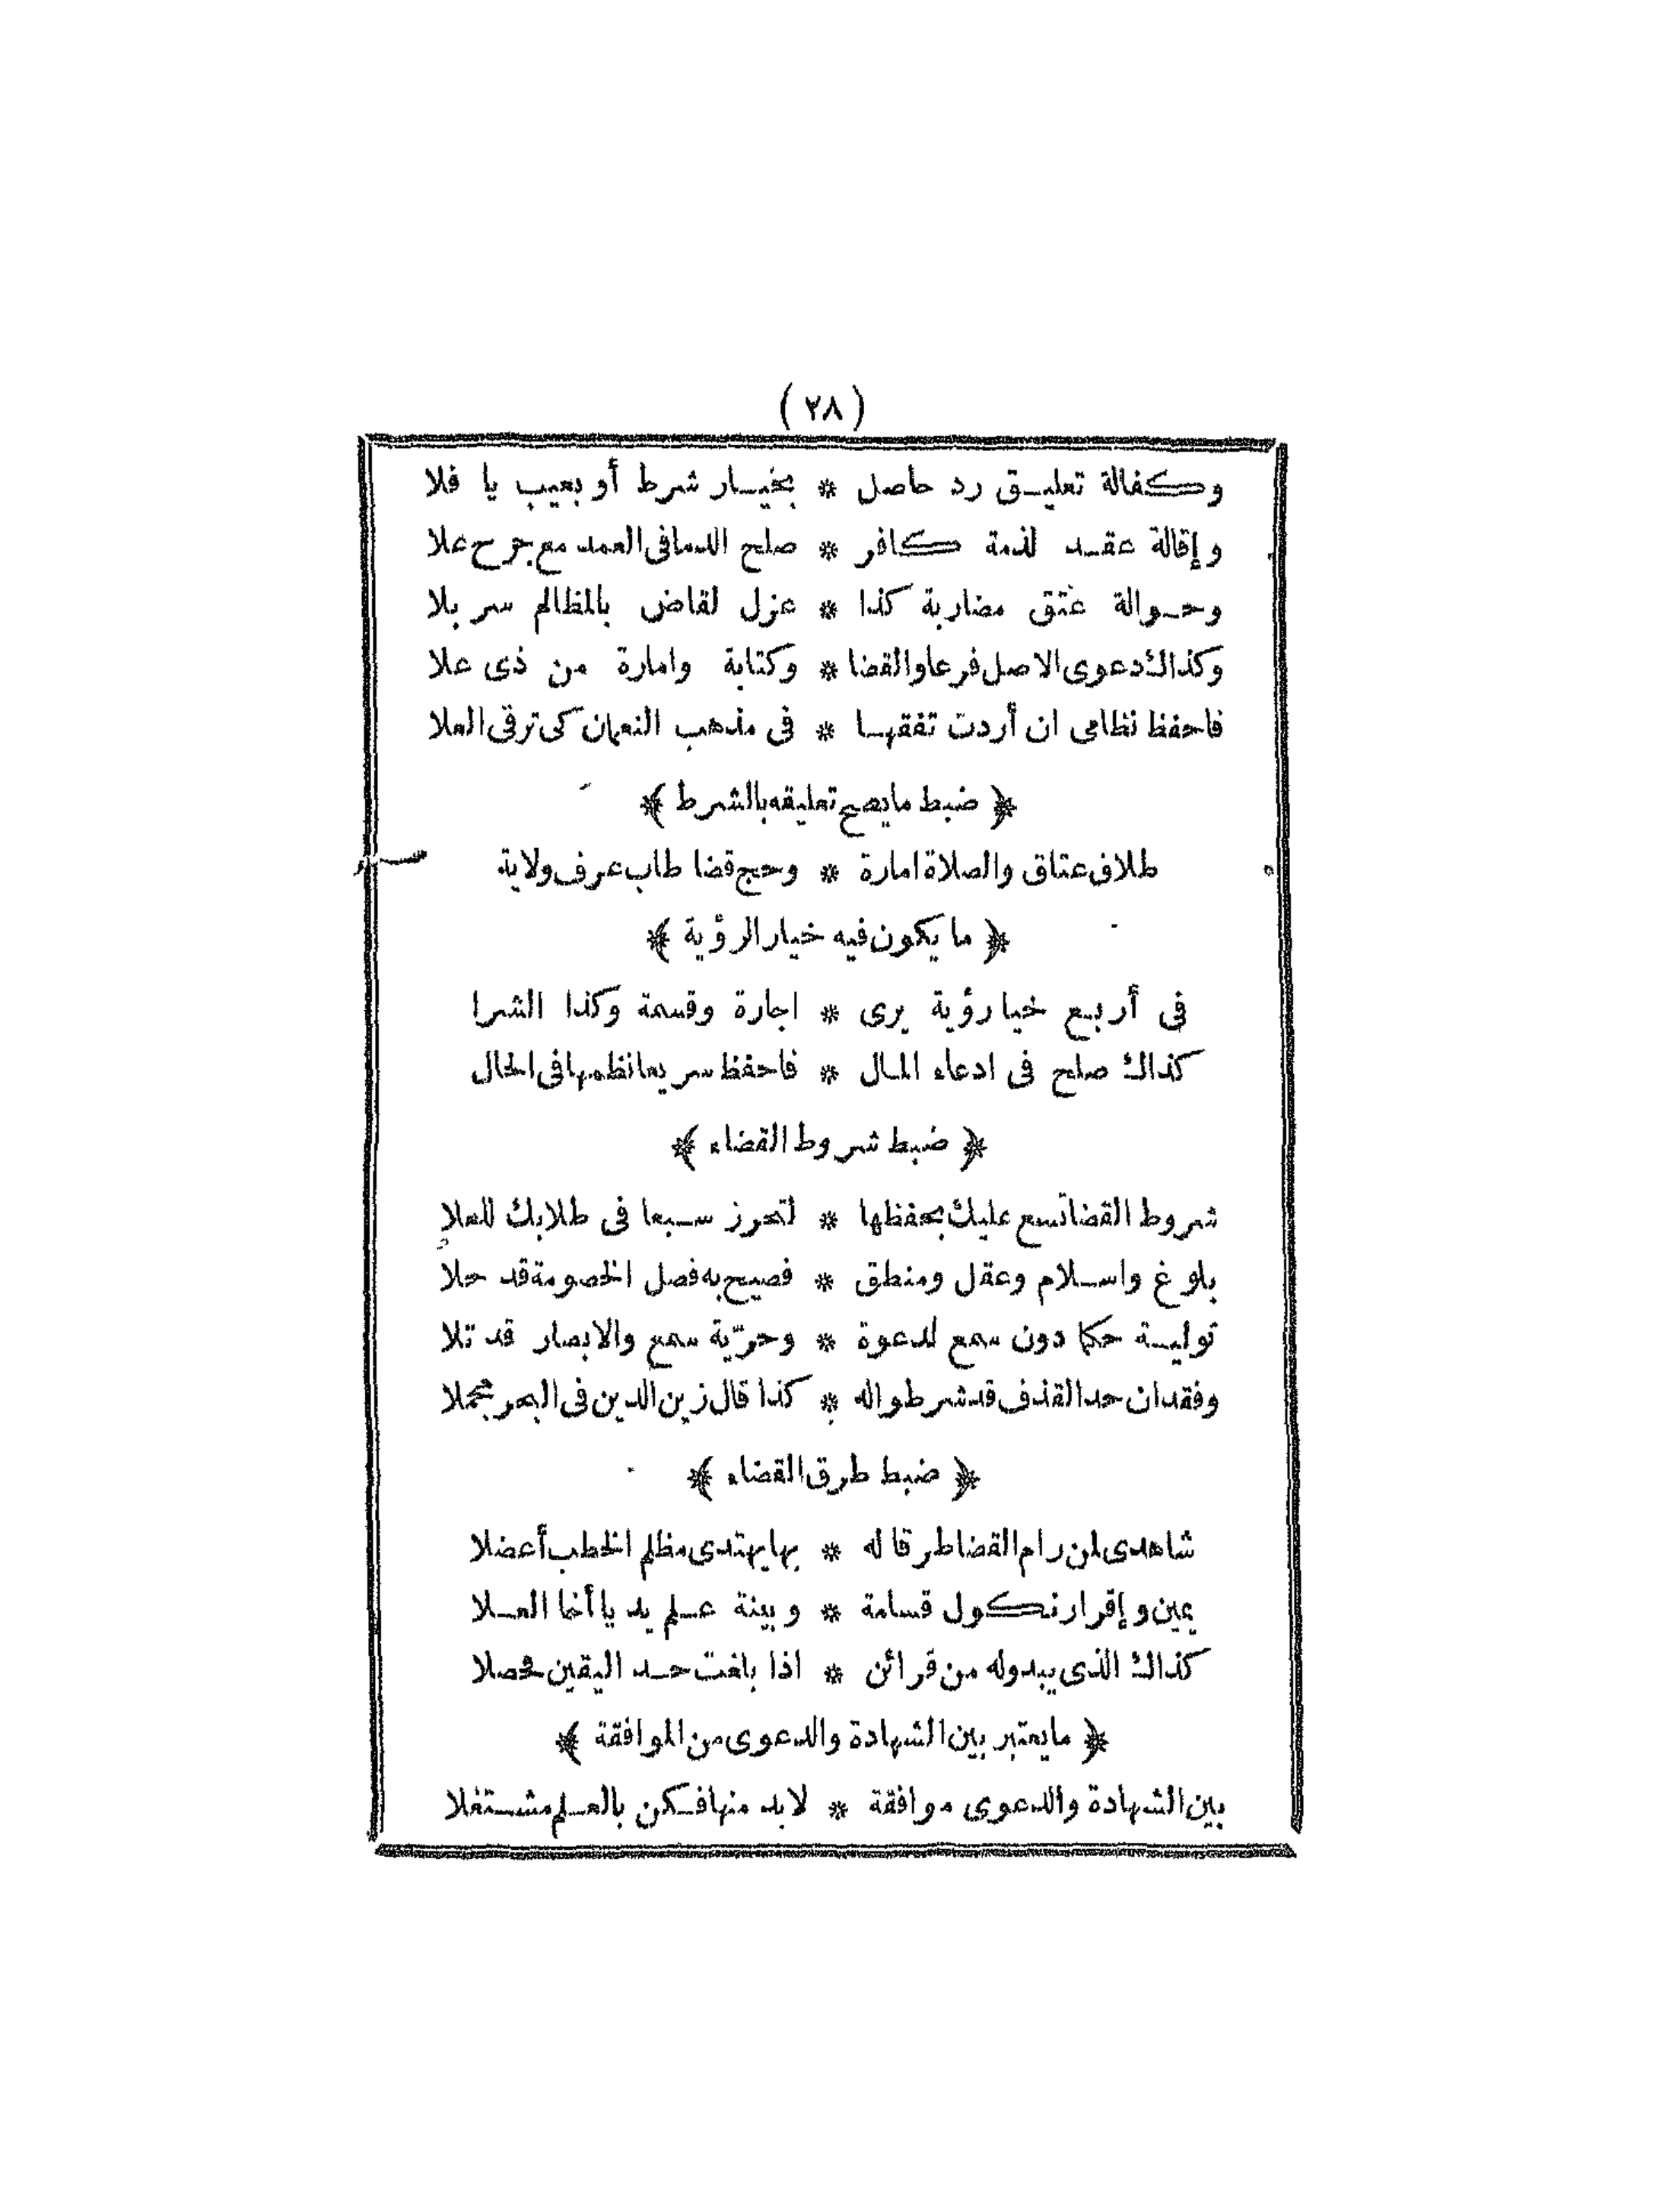 ( ٢٨ )
وكفالة تعليق رد حاصل * بخيار شرط أو بعيب يا فلا
وإقالة عقد لذمة كافر * صلح الدما فى العمد مع جرح علا
وحوالة عتق مضاربة كذا * عزل لقاض بالمظالم سر بلا
وكذاك دعوى الاصل فرعا والقضا * وكتابة وامارة من ذى علا
فاحفظ نظامى ان أردت تفقها * فى مذهب النعمان كى ترقى العلا
﴿ ضبط ما يصح تعليقه بالشرط ﴾
طلاق عتاق والصلاة امارة * وحج قضا طاب عرف ولاية
﴿ ما يكون فيه خيار الرؤية ﴾
فى أربع خيار رؤية يرى * اجارة وقسمة وكذا الشرا
كذاك صلح فى ادعاء المال * فاحفظ سريعا نظمها فى الحال
﴿ ضبط شروط القضاء ﴾
شروط القضا تسع عليك بحفظها * لتحرز سبعا فى طلابك للعلا
بلوغ واسلام وعقل ومنطق * فصيح به فصل الخصومة قد حلا
تولية حكما دون سمع لدعوة * وحرّية سمع والابصار قد تلا
وفقدان حد القذف قد شرطوا له * كذا قال زين الدين فى البحر مجملا
﴿ ضبط طرق القضاء ﴾
شاهدى لمن رام القضا طرقا له * بها يهتدى مظلم الخطب أعضلا
يمين وإقرار نكول قسامة * وبينة علم يد يا أخا العلا
كذاك الذى يبدو له من قرائن * اذا بلغت حد اليقين محصلا
﴿ ما يعتبر بين الشهادة والدعوى من الموافقة ﴾
بين الشهادة والدعوى موافقة * لابد منها فكن بالعلم مشتغلا